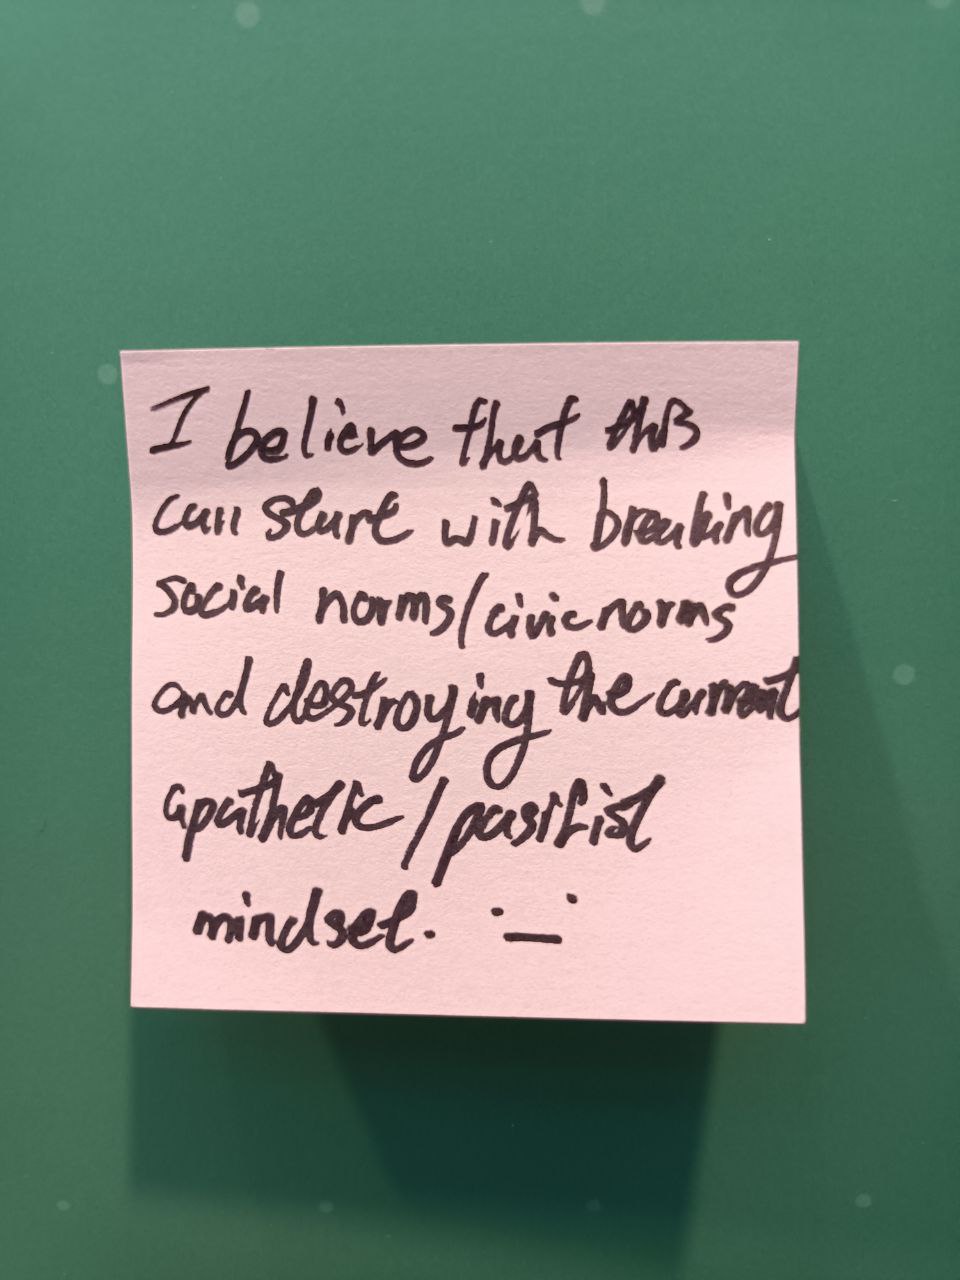 I believe that this
can start with breaking
social norms/civic norms
and destroying the current
apathetic/pasifist
mindset. ._.